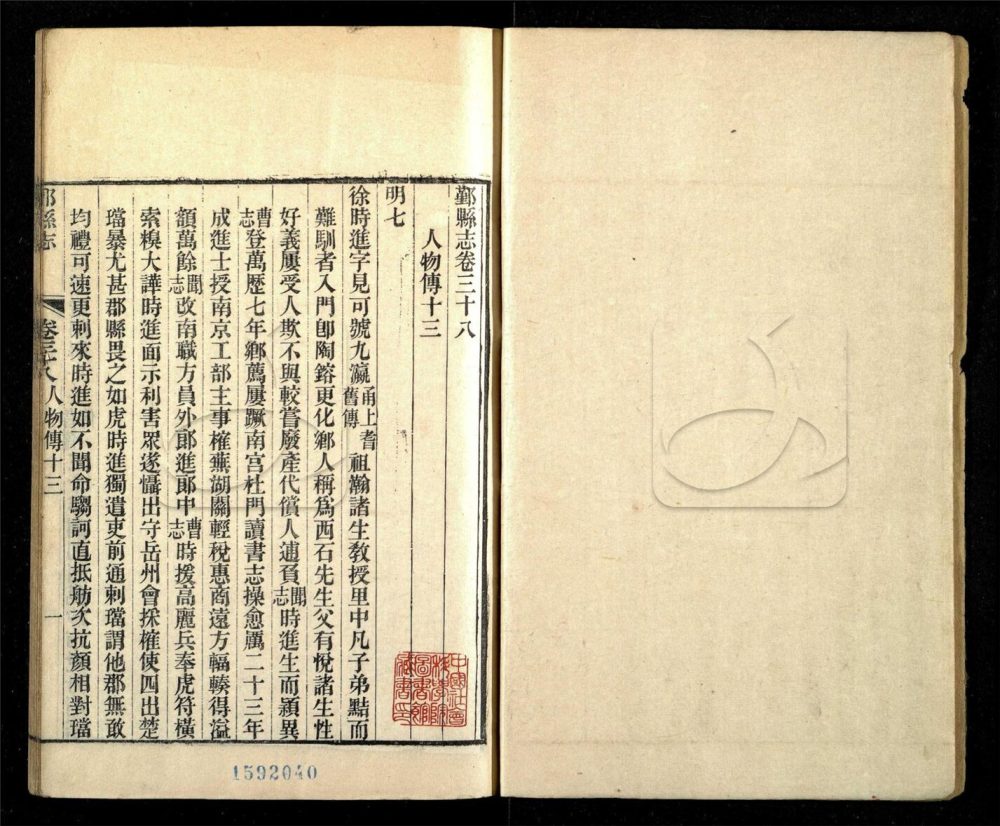 鄞縣志卷三十八
人物傳十三
明七
徐時進字見可號九瀛甬上耆舊傳祖瀚諸生教授里中凡子弟黠而
難馴者入門卽陶鎔更化鄉人稱爲西石先生父有悅諸生性
好義屢受人欺不與較嘗廢產代償人逋負聞志時進生而穎異
曹志登萬歷七年鄉薦屢蹶南宫杜門讀書志操愈厲二十三年
成進士授南京工部主事榷蕪湖關輕稅惠商遠方輻輳得溢
額萬餘聞志改南職方員外郞進郞中曹志時援高麗兵奉虎符橫
索糗大譁時進面示利害眾遂懾出守岳州會採榷使四出楚
璫暴尤甚郡縣畏之如虎時進獨遣吏前通刺璫謂他郡無敢
均禮可速更刺來時進如不聞命騶訶直抵舫次抗顏相對璫
鄞縣志
卷三十八人物傳十三
一
中國社會
科學院
圖書館
藏書印
1592040